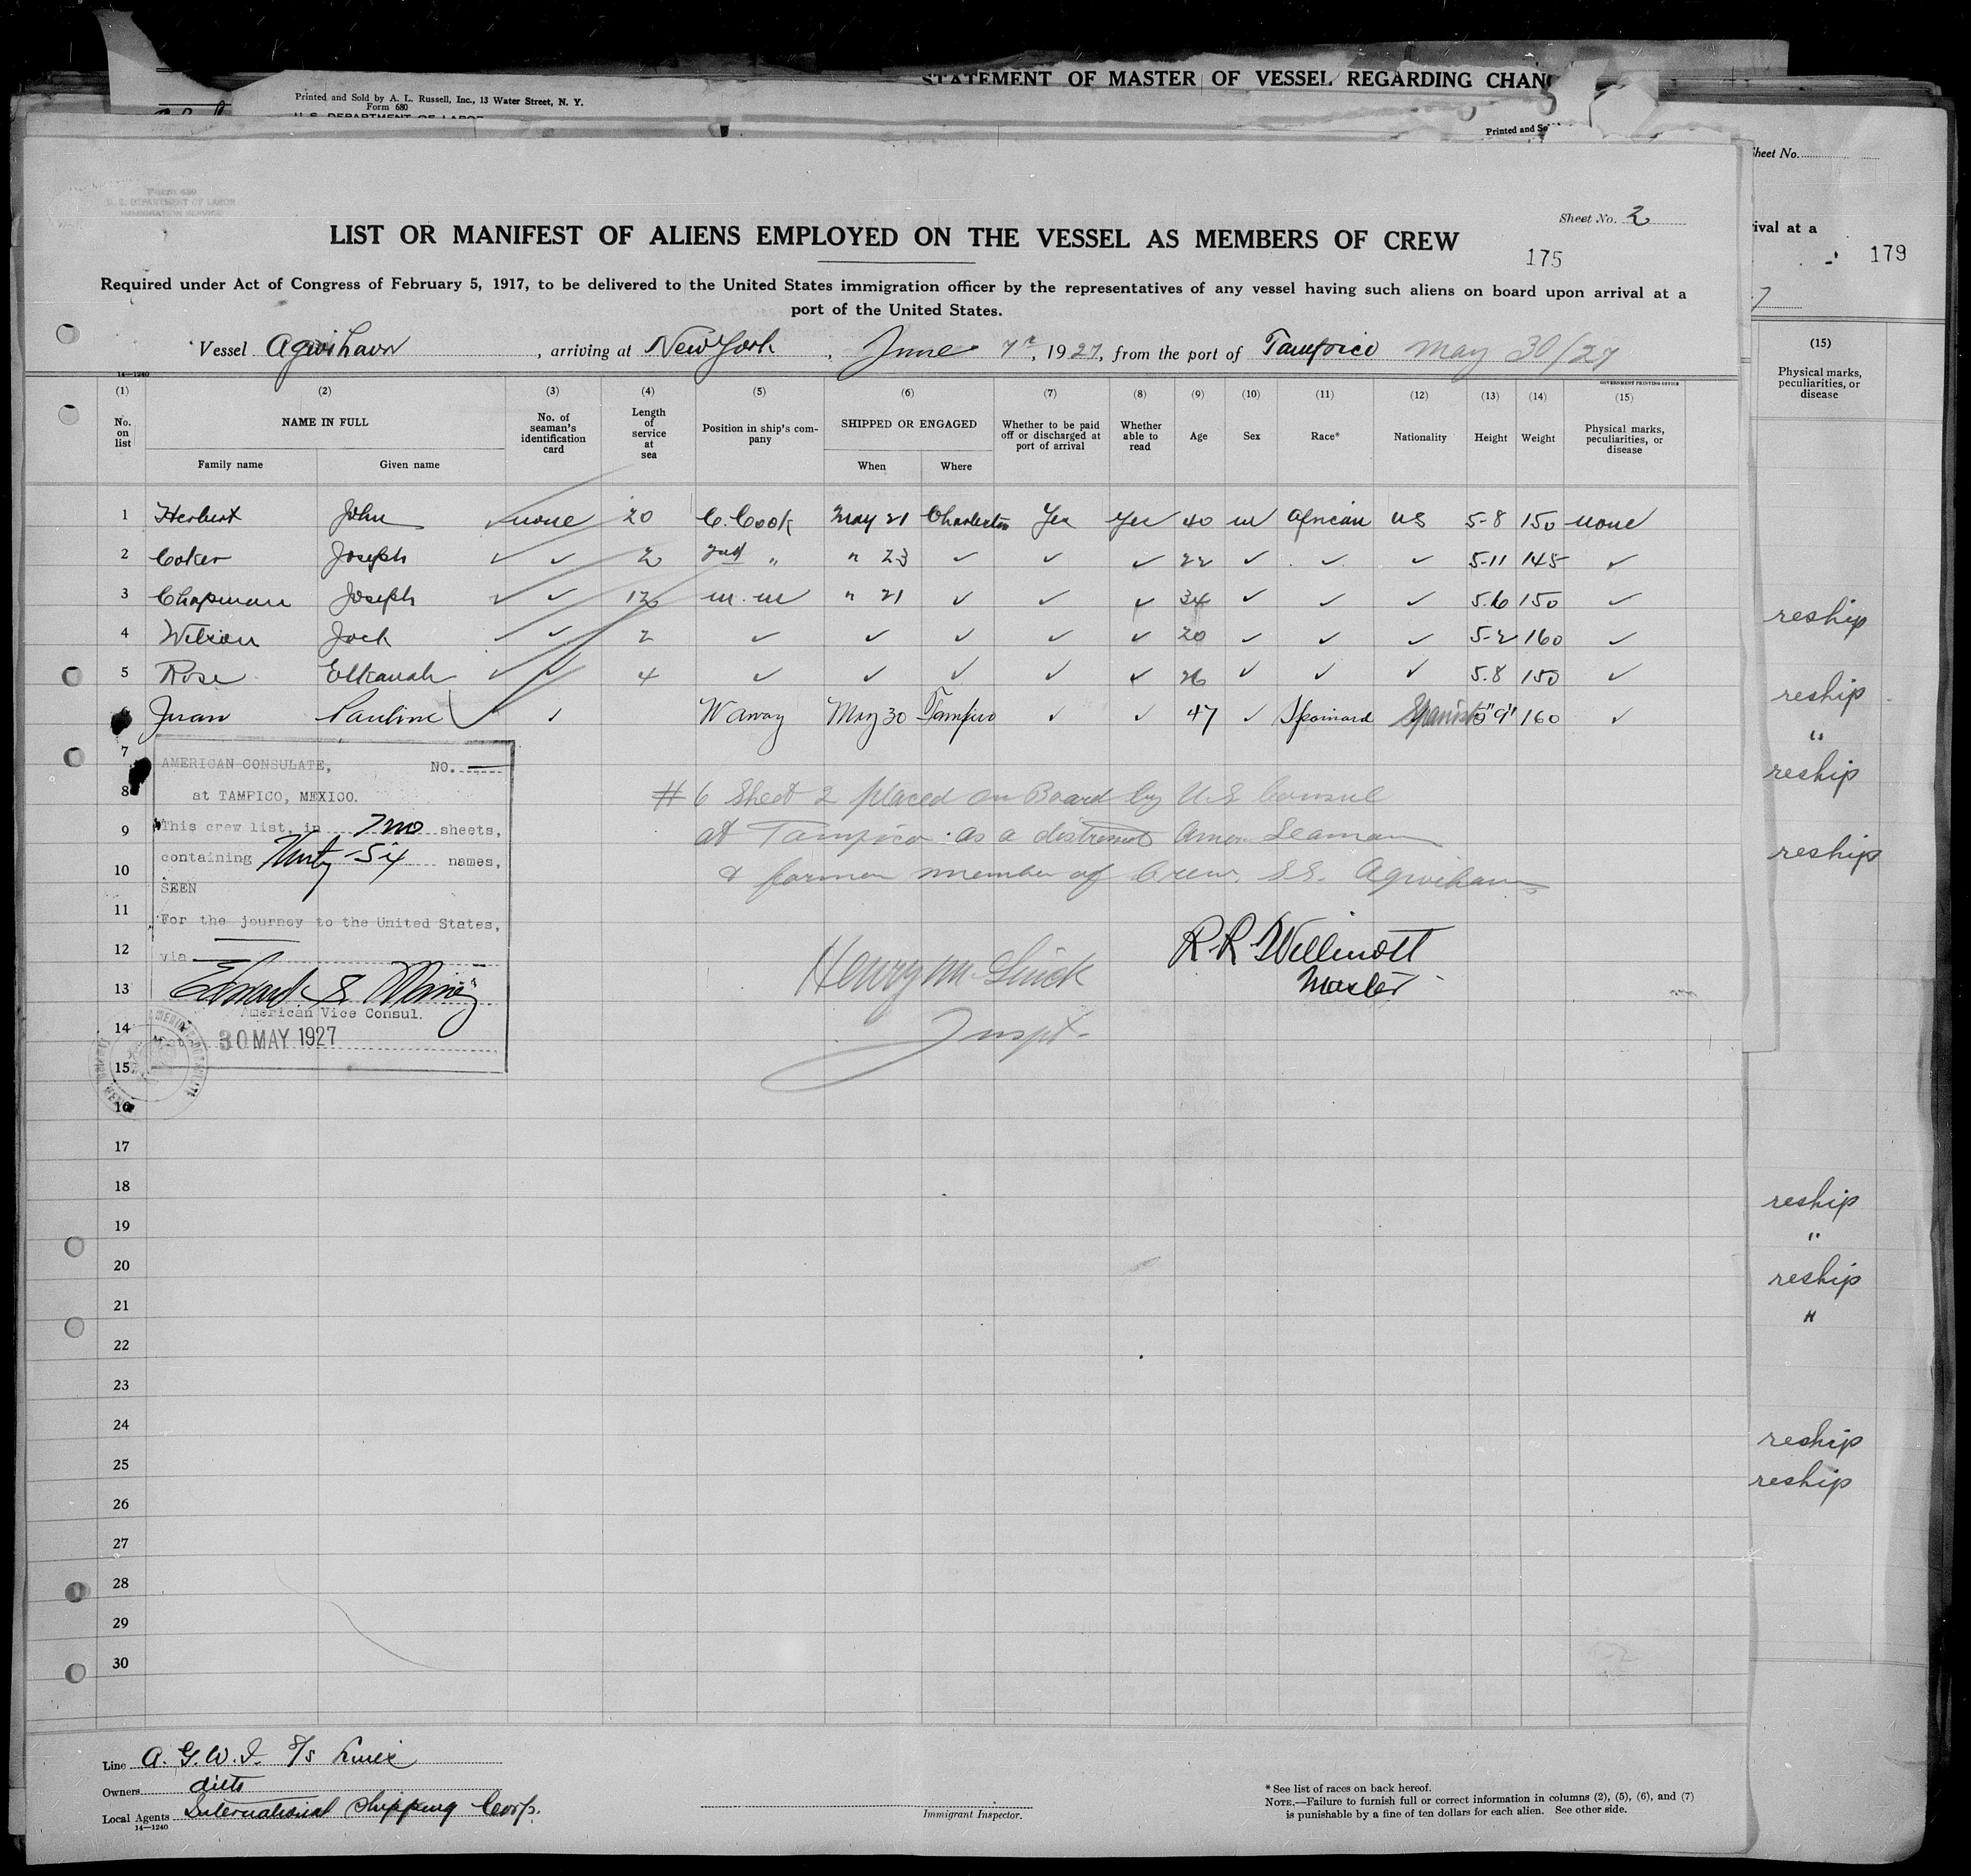 STATEMENT OF MASTER OF VESSEL REGARDING CHAN
Printed and Sold by A. L. Russell, Inc., 13 Water Street, N. Y.
Form 680
U. S. DEPARTMENT OF LABOR
Printed and So
Sheet No.
ival at a
179
7
(15)
Physical marks,
peculiarities, or
disease
reship
reship
"
reship
reship
reship
"
reship
"
reship
reship
Form 680
U. S. DEPARTMENT OF LABOR
IMMIGRATION SERVICE
Sheet No. 2
LIST OR MANIFEST OF ALIENS EMPLOYED ON THE VESSEL AS MEMBERS OF CREW
175
Required under Act of Congress of February 5, 1917, to be delivered to the United States immigration officer by the representatives of any vessel having such aliens on board upon arrival at a
port of the United States.
Vessel Agwihavn, arriving at New York, June 7th, 1927, from the port of Tampico May 30/27
14—1240
GOVERNMENT PRINTING OFFICE
(1) (2) (3) (4) (5) (6) (7) (8) (9) (10) (11) (12) (13) (14) (15)
No. on list
NAME IN FULL
Family name Given name
No. of seaman's identification card
Length of service at sea
Position in ship's company
SHIPPED OR ENGAGED
When Where
Whether to be paid off or discharged at port of arrival
Whether able to read
Age Sex Race* Nationality Height Weight
Physical marks, peculiarities, or disease
1 Herbert John ✓ none 20 C. Cook May 21 Charleston Yes Yes 40 m African US 5-8 150 none
2 Coker Joseph ✓ ✓ 2 2nd " " 23 ✓ ✓ ✓ 22 ✓ ✓ ✓ 5-11 145 ✓
3 Chapman Joseph ✓ ✓ 12 m. m " 21 ✓ ✓ ✓ 34 ✓ ✓ ✓ 5.6 150 ✓
4 Wilson Jack ✓ ✓ 2 ✓ ✓ ✓ ✓ ✓ 20 ✓ ✓ ✓ 5-2 160 ✓
5 Rose Elkanah ✓ ✓ 4 ✓ ✓ ✓ ✓ ✓ 26 ✓ ✓ ✓ 5.8 150 ✓
6 Juan Pauline ✓ ✓ Waway May 30 Tampico ✓ ✓ 47 ✓ Spainard Spanish 5"9" 160 ✓
7
8
9
10
11
12
13
14
15
16
17
18
19
20
21
22
23
24
25
26
27
28
29
30
AMERICAN CONSULATE, NO. —
at TAMPICO, MEXICO.
This crew list, in Two sheets,
containing Thirty-Six names,
SEEN
For the journey to the United States,
via
Edward S.
American Vice Consul.
30 MAY 1927
# 6 Sheet 2 placed on Board by U.S Consul
at Tampico as a distressed Amer. Seaman
& former member of Crew. S.S. Agwihavn
R. R. Willmott
Master
Henry M.
Inspt.
Line A. G. W. I. S/S Lines
Owners ditto
Local Agents International Shipping Corp.
14—1240
Immigrant Inspector.
* See list of races on back hereof.
NOTE.—Failure to furnish full or correct information in columns (2), (5), (6), and (7)
is punishable by a fine of ten dollars for each alien. See other side.